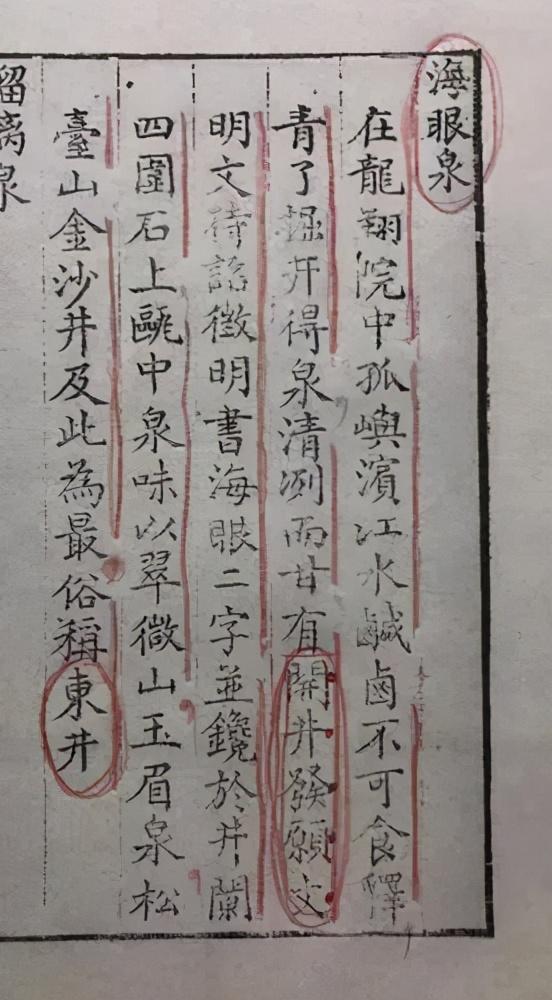 海眼泉
在龍翔院中孤嶼濱江水鹹鹵不可食釋
青了掘井得泉清冽而甘有開井發願文
明文待詔徵明書海眼二字並鑱於井闌
四圍石上甌中泉味以翠微山玉眉泉松
臺山金沙井及此為最俗稱東井
琉璃泉